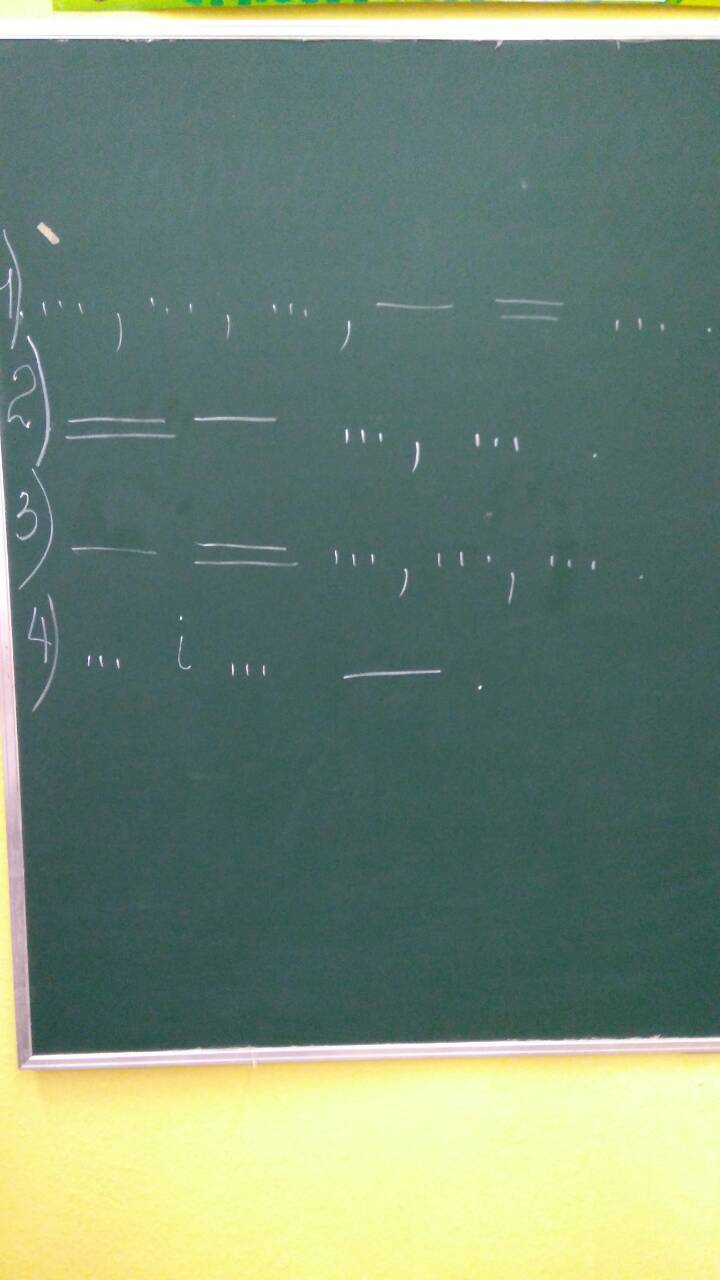 1) ... , ... , ... , — = ... .
2) = — ... , ... .
3) — = ... , ... , ... .
4) ... і ... — .